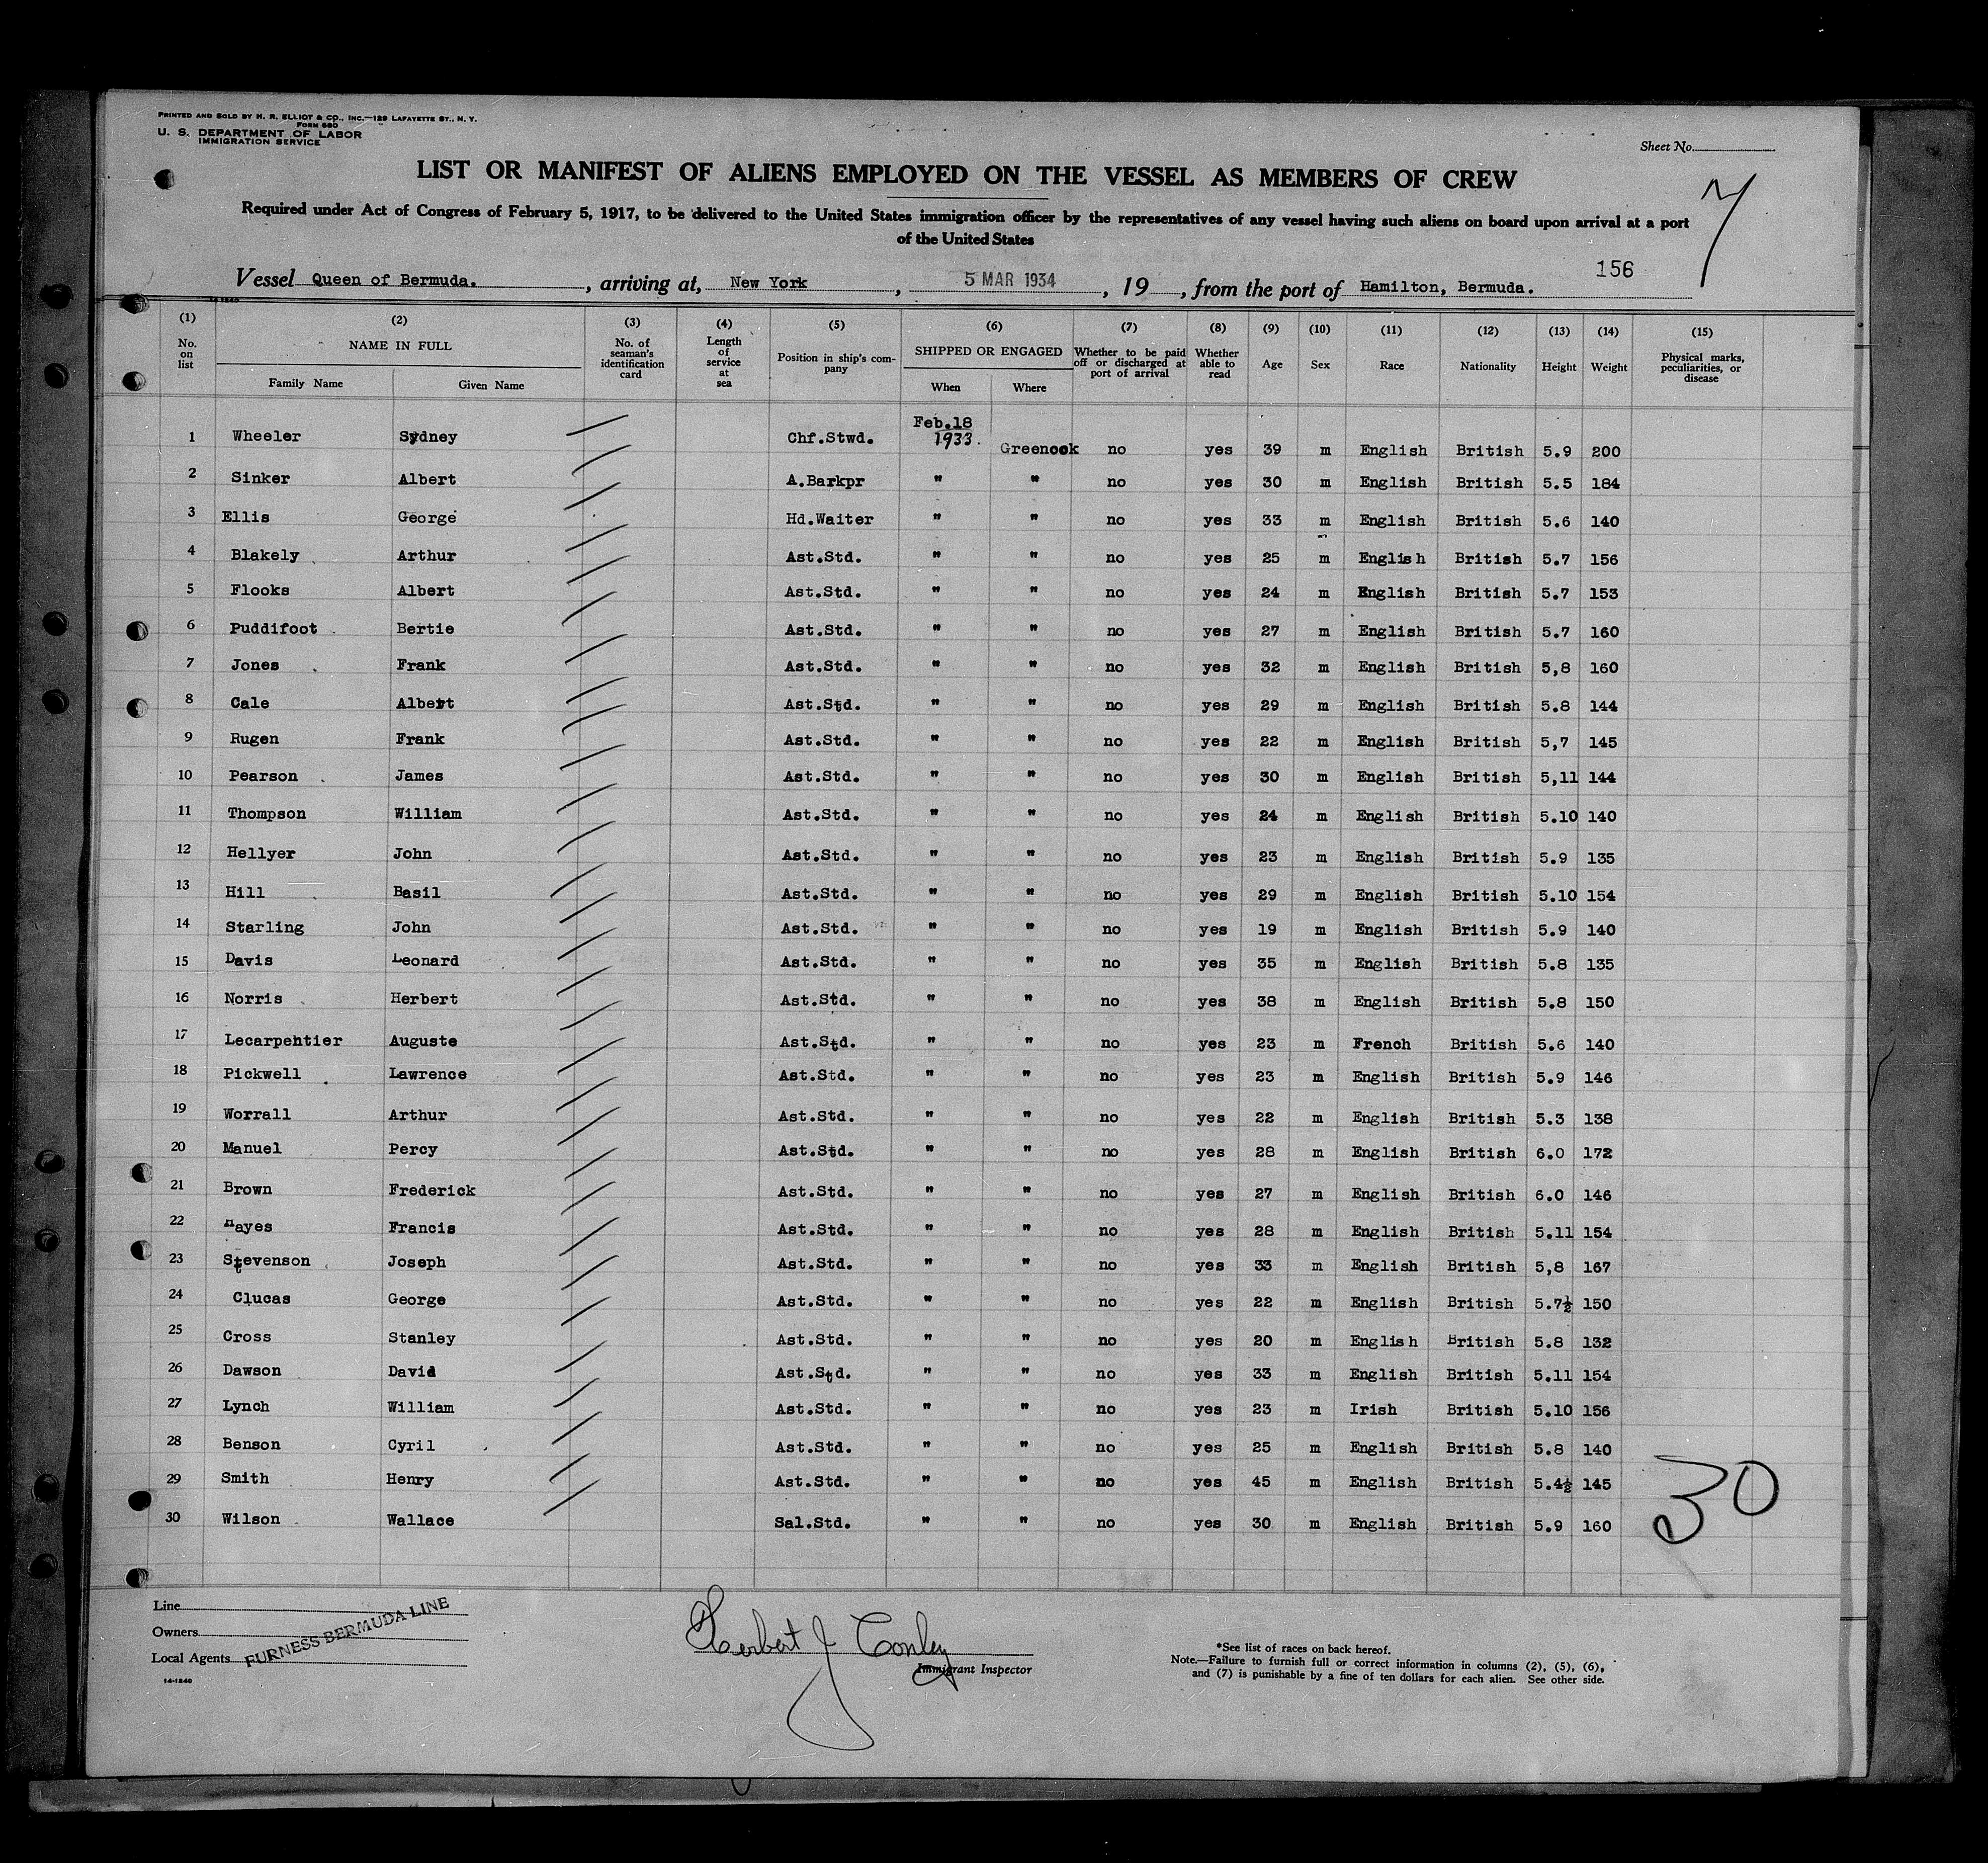 PRINTED AND SOLD BY H. R. ELLIOT & CO., INC.—129 LAFAYETTE ST., N. Y.
FORM 680
U. S. DEPARTMENT OF LABOR
IMMIGRATION SERVICE
Sheet No.
7
LIST OR MANIFEST OF ALIENS EMPLOYED ON THE VESSEL AS MEMBERS OF CREW
Required under Act of Congress of February 5, 1917, to be delivered to the United States immigration officer by the representatives of any vessel having such aliens on board upon arrival at a port
of the United States
156
Vessel Queen of Bermuda. , arriving at, New York , 5 MAR 1934 , 19 , from the port of Hamilton, Bermuda.
14-1240
(1) (2) (3) (4) (5) (6) (7) (8) (9) (10) (11) (12) (13) (14) (15)
No. on list NAME IN FULL Family Name Given Name No. of seaman's identification card Length of service at sea Position in ship's company SHIPPED OR ENGAGED When Where Whether to be paid off or discharged at port of arrival Whether able to read Age Sex Race Nationality Height Weight Physical marks, peculiarities, or disease
1 Wheeler Sydney Chf.Stwd. Feb.18 1933. Greenock no yes 39 m English British 5.9 200
2 Sinker Albert A.Barkpr " " no yes 30 m English British 5.5 184
3 Ellis George Hd.Waiter " " no yes 33 m English British 5.6 140
4 Blakely Arthur Ast.Std. " " no yes 25 m English British 5.7 156
5 Flooks Albert Ast.Std. " " no yes 24 m English British 5.7 153
6 Puddifoot Bertie Ast.Std. " " no yes 27 m English British 5.7 160
7 Jones Frank Ast.Std. " " no yes 32 m English British 5,8 160
8 Cale Albert Ast.Std. " " no yes 29 m English British 5.8 144
9 Rugen Frank Ast.Std. " " no yes 22 m English British 5,7 145
10 Pearson James Ast.Std. " " no yes 30 m English British 5,11 144
11 Thompson William Ast.Std. " " no yes 24 m English British 5.10 140
12 Hellyer John Ast.Std. " " no yes 23 m English British 5.9 135
13 Hill Basil Ast.Std. " " no yes 29 m English British 5.10 154
14 Starling John Ast.Std. " " no yes 19 m English British 5.9 140
15 Davis Leonard Ast.Std. " " no yes 35 m English British 5.8 135
16 Norris Herbert Ast.Std. " " no yes 38 m English British 5.8 150
17 Lecarpehtier Auguste Ast.Std. " " no yes 23 m French British 5.6 140
18 Pickwell Lawrence Ast.Std. " " no yes 23 m English British 5.9 146
19 Worrall Arthur Ast.Std. " " no yes 22 m English British 5.3 138
20 Manuel Percy Ast.Std. " " no yes 28 m English British 6.0 172
21 Brown Frederick Ast.Std. " " no yes 27 m English British 6.0 146
22 Hayes Francis Ast.Std. " " no yes 28 m English British 5.11 154
23 Stevenson Joseph Ast.Std. " " no yes 33 m English British 5,8 167
24 Clucas George Ast.Std. " " no yes 22 m English British 5.7½ 150
25 Cross Stanley Ast.Std. " " no yes 20 m English British 5.8 132
26 Dawson David Ast.Std. " " no yes 33 m English British 5.11 154
27 Lynch William Ast.Std. " " no yes 23 m Irish British 5.10 156
28 Benson Cyril Ast.Std. " " no yes 25 m English British 5.8 140
29 Smith Henry Ast.Std. " " no yes 45 m English British 5.4½ 145
30 Wilson Wallace Sal.Std. " " no yes 30 m English British 5.9 160
30
Line
Owners
Local Agents
FURNESS BERMUDA LINE
14-1240
Herbert J Conley
Immigrant Inspector
*See list of races on back hereof.
Note.—Failure to furnish full or correct information in columns (2), (5), (6),
and (7) is punishable by a fine of ten dollars for each alien. See other side.